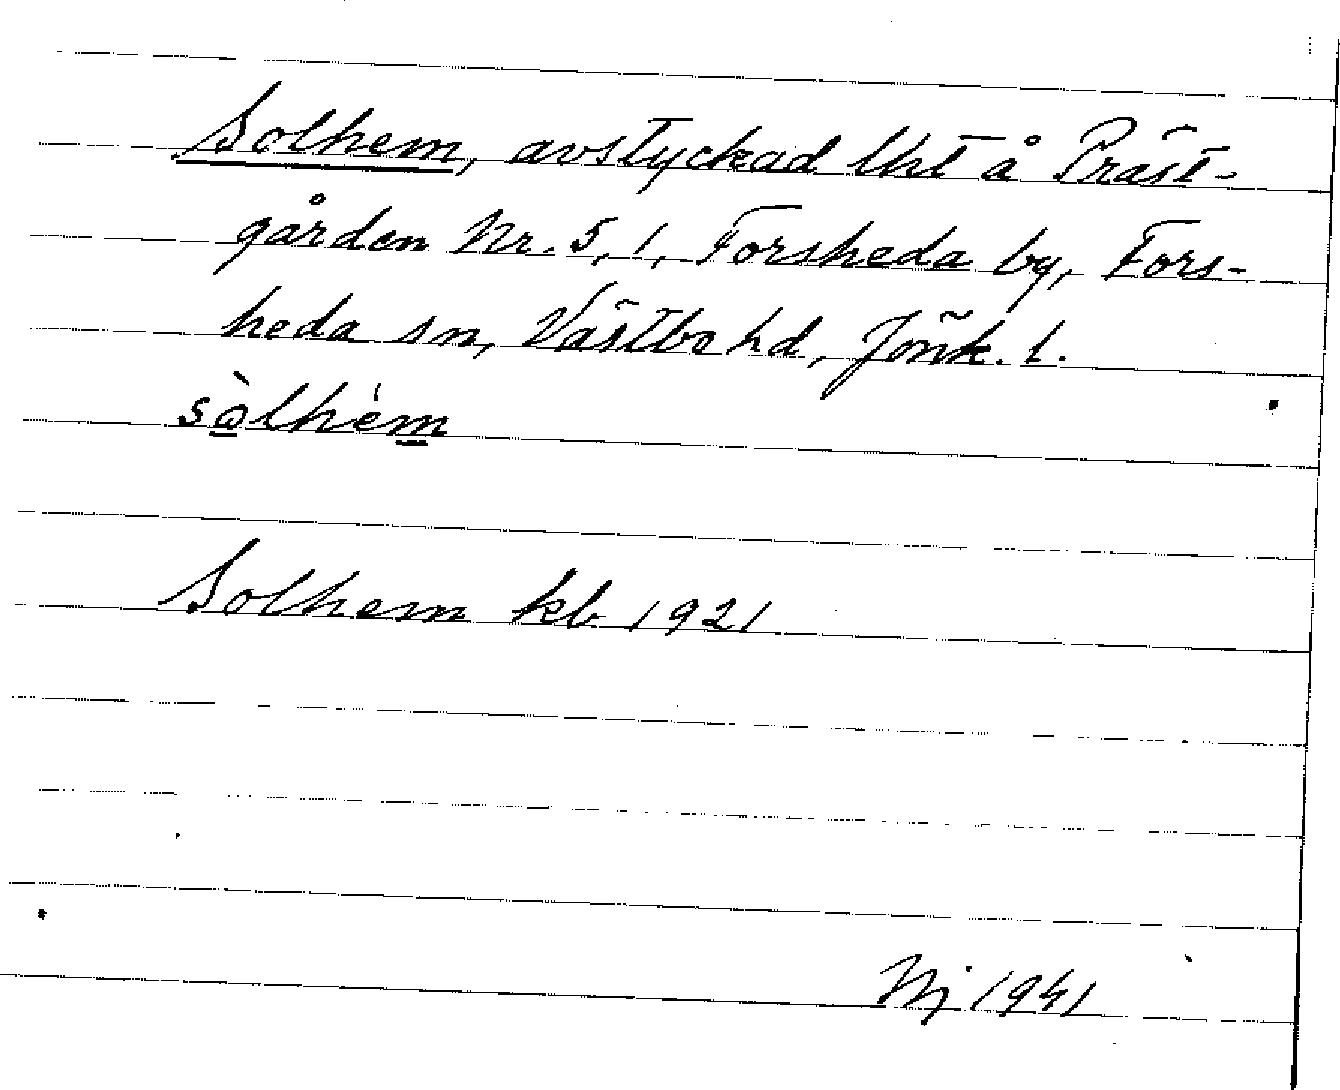 Solhem, avstyckad lht å Präst-
gården Nr. 5, 1, Forsheda by, Fors-
heda sn, Västbo hd, Jönk. l.
sòlhém
Solhem kb 1921
Nj 1941